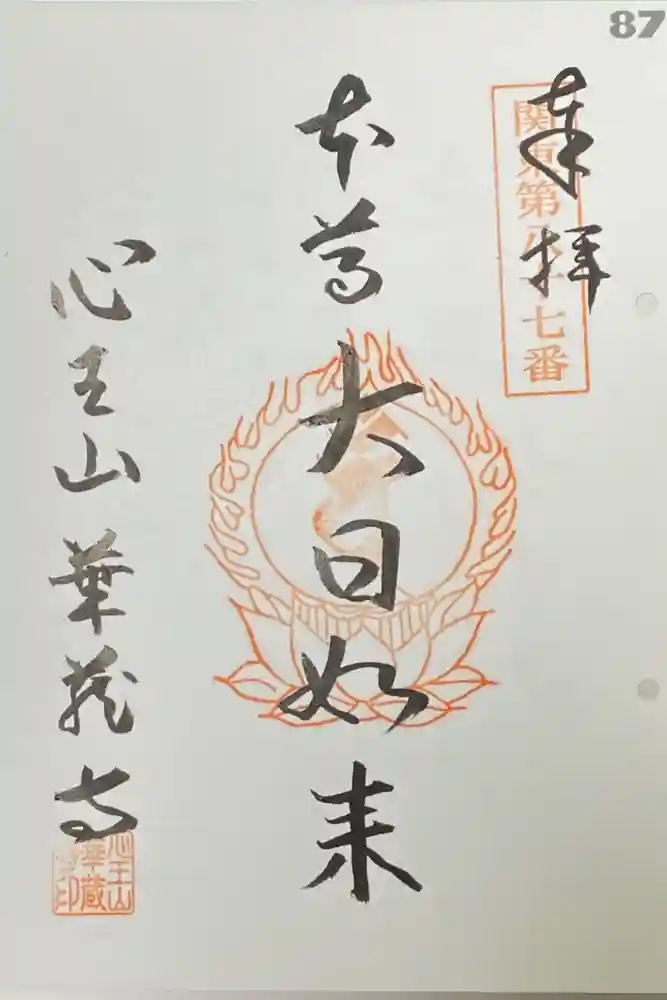 87
奉拝
関東第八十七番
本尊 大日如来
心王山 華蔵寺
心王山
華蔵
寺印